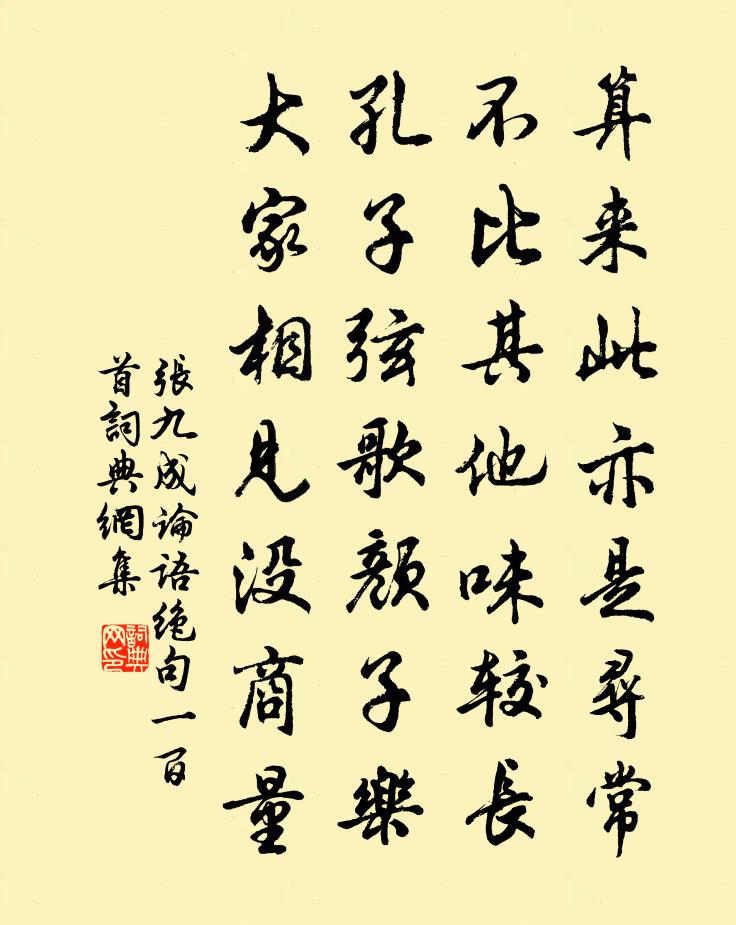 算来此亦是尋常
不比其他味较長
孔子弦歌颜子樂
大家相見没商量
張九成論語绝句一百
首詞典網集
詞典
网印